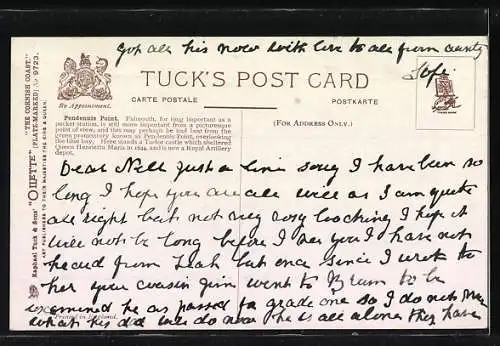 got all his now with love to all from aunty
Sofi
TUCK'S POST CARD
By Appointment.
CARTE POSTALE
POSTKARTE
(FOR ADDRESS ONLY.)
Pendennis Point. Falmouth, for long important as a
packet station, is still more important from a picturesque
point of view, and this may perhaps be told best from the
green promontory known as Pendennis Point, overlooking
the tiny bay. Here stands a Tudor castle which sheltered
Queen Henrietta Maria in 1644, and is now a Royal Artillery
depot.
Raphael Tuck & Sons' "OILETTE" "THE CORNISH COAST."
(PLATE-MARKED) 9723.
ART PUBLISHERS TO THEIR MAJESTIES THE KING & QUEEN.
Dear Nell Just a line sorry I have been so
long I hope you are all well as I am quite
all right but not very looking I hope it
will not be long before I see you I have not
heard from but once since I wrote to
her your cousin Jim went to Brum to be
examined he as passed for grade one so I do not
what his dad will do now he is all alone they have
Printed in England.